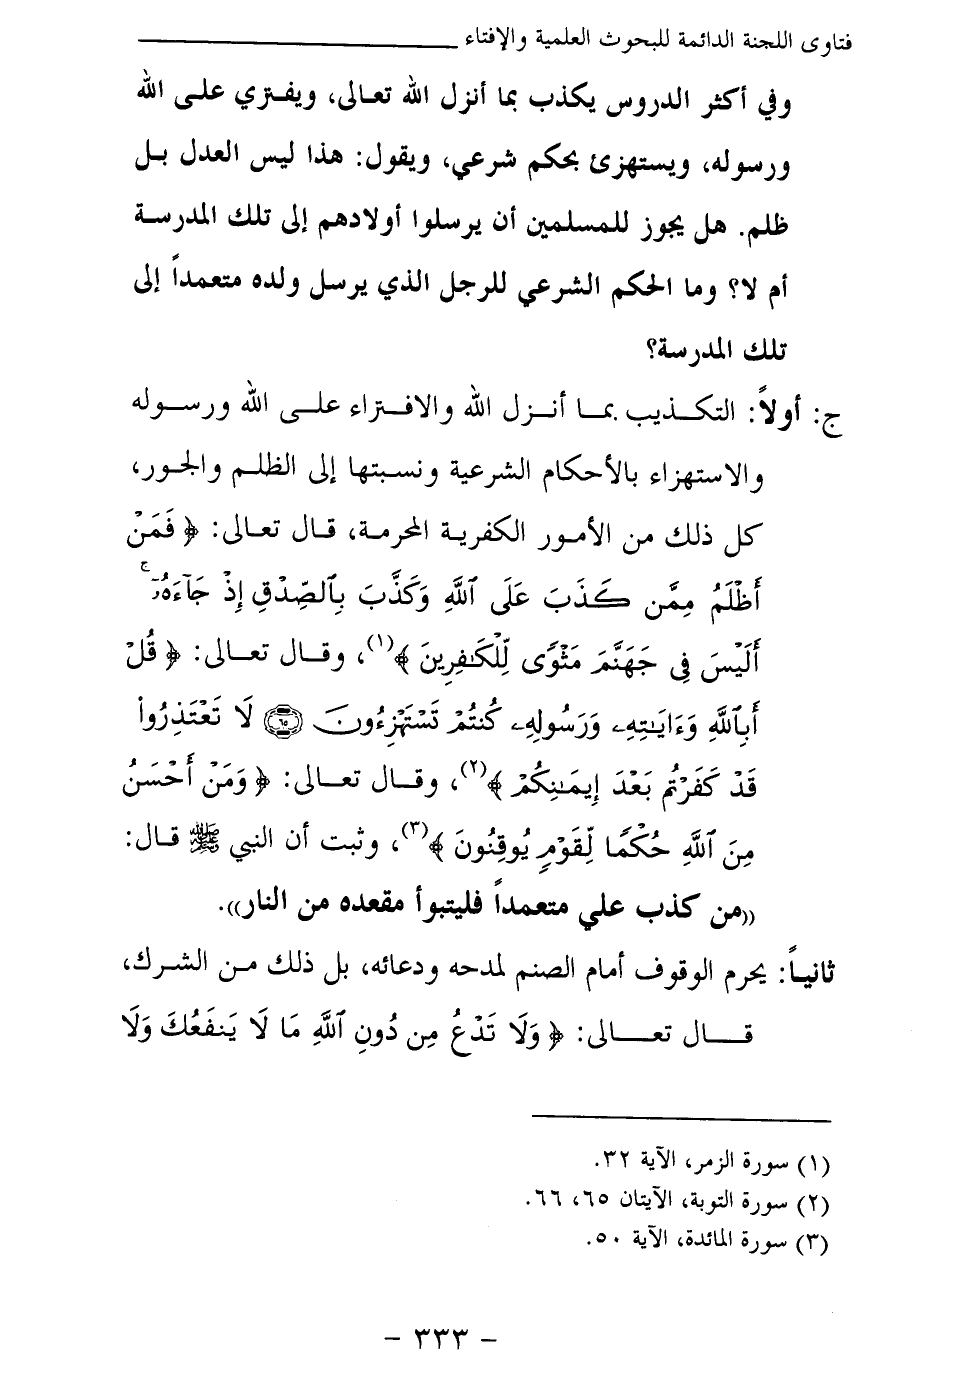 فتاوى اللجنة الدائمة للبحوث العلمية والإفتاء
وفي أكثر الدروس يكذب بما أنزل الله تعالى، ويفتري على الله
ورسوله، ويستهزئ بحكم شرعي، ويقول: هذا ليس العدل بل
ظلم. هل يجوز للمسلمين أن يرسلوا أولادهم إلى تلك المدرسة
أم لا؟ وما الحكم الشرعي للرجل الذي يرسل ولده متعمداً إلى
تلك المدرسة؟
ج: أولاً: التكذيب بما أنزل الله والافتراء على الله ورسوله
والاستهزاء بالأحكام الشرعية ونسبتها إلى الظلم والجور،
كل ذلك من الأمور الكفرية المحرمة، قال تعالى: ﴿ فَمَنْ
أَظْلَمُ مِمَّن كَذَبَ عَلَى ٱللَّهِ وَكَذَّبَ بِٱلصِّدْقِ إِذْ جَآءَهُۥٓ ۚ
أَلَيْسَ فِى جَهَنَّمَ مَثْوًى لِّلْكَـٰفِرِينَ ﴾(١)، وقال تعالى: ﴿ قُلْ
أَبِٱللَّهِ وَءَايَـٰتِهِۦ وَرَسُولِهِۦ كُنتُمْ تَسْتَهْزِءُونَ ۝٦٥ لَا تَعْتَذِرُوا۟
قَدْ كَفَرْتُم بَعْدَ إِيمَـٰنِكُمْ ﴾(٢)، وقال تعالى: ﴿ وَمَنْ أَحْسَنُ
مِنَ ٱللَّهِ حُكْمًا لِّقَوْمٍ يُوقِنُونَ ﴾(٣)، وثبت أن النبي ﷺ قال:
((من كذب علي متعمداً فليتبوأ مقعده من النار)).
ثانياً: يحرم الوقوف أمام الصنم لمدحه ودعائه، بل ذلك من الشرك،
قال تعالى: ﴿ وَلَا تَدْعُ مِن دُونِ ٱللَّهِ مَا لَا يَنفَعُكَ وَلَا
(١) سورة الزمر، الآية ٣٢.
(٢) سورة التوبة، الآيتان ٦٥، ٦٦.
(٣) سورة المائدة، الآية ٥٠.
- ٣٣٣ -